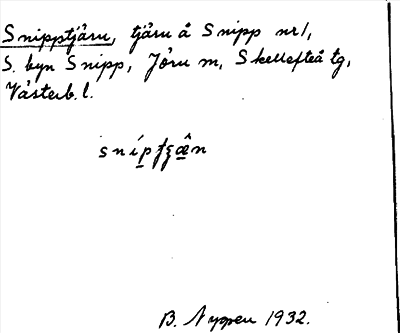 Snipptjärn, tjärn å Snipp nr 1,
S. byn Snipp, Jörn sn, Skellefteå tg,
Västerb. l.
snípt̶ʒæ̂n
B. Nyppen 1932.